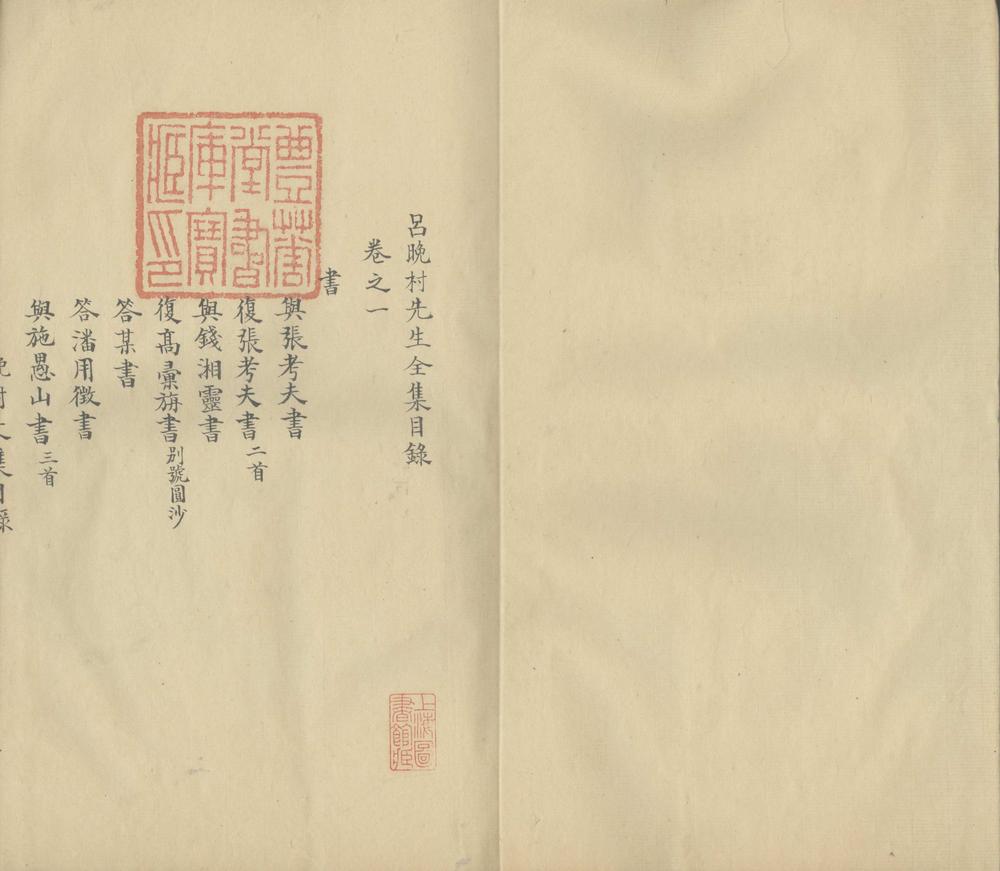 呂晚村先生全集目錄
卷之一
書
與張考夫書
復張考夫書二首
與錢湘靈書
復高彙旃書別號圓沙
答某書
答潘用徵書
與施愚山書三首
豐華堂書庫寶藏印
上海圖書館藏